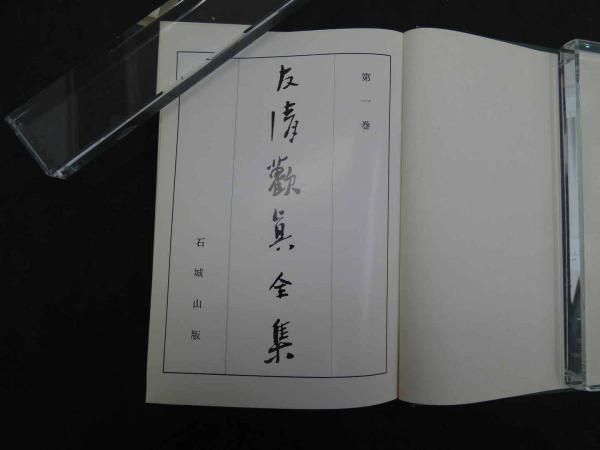 第一巻
友清歡眞全集
石城山版